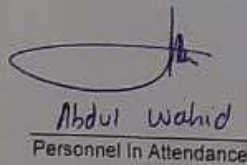 Abdul Wahid
Personnel In Attendance